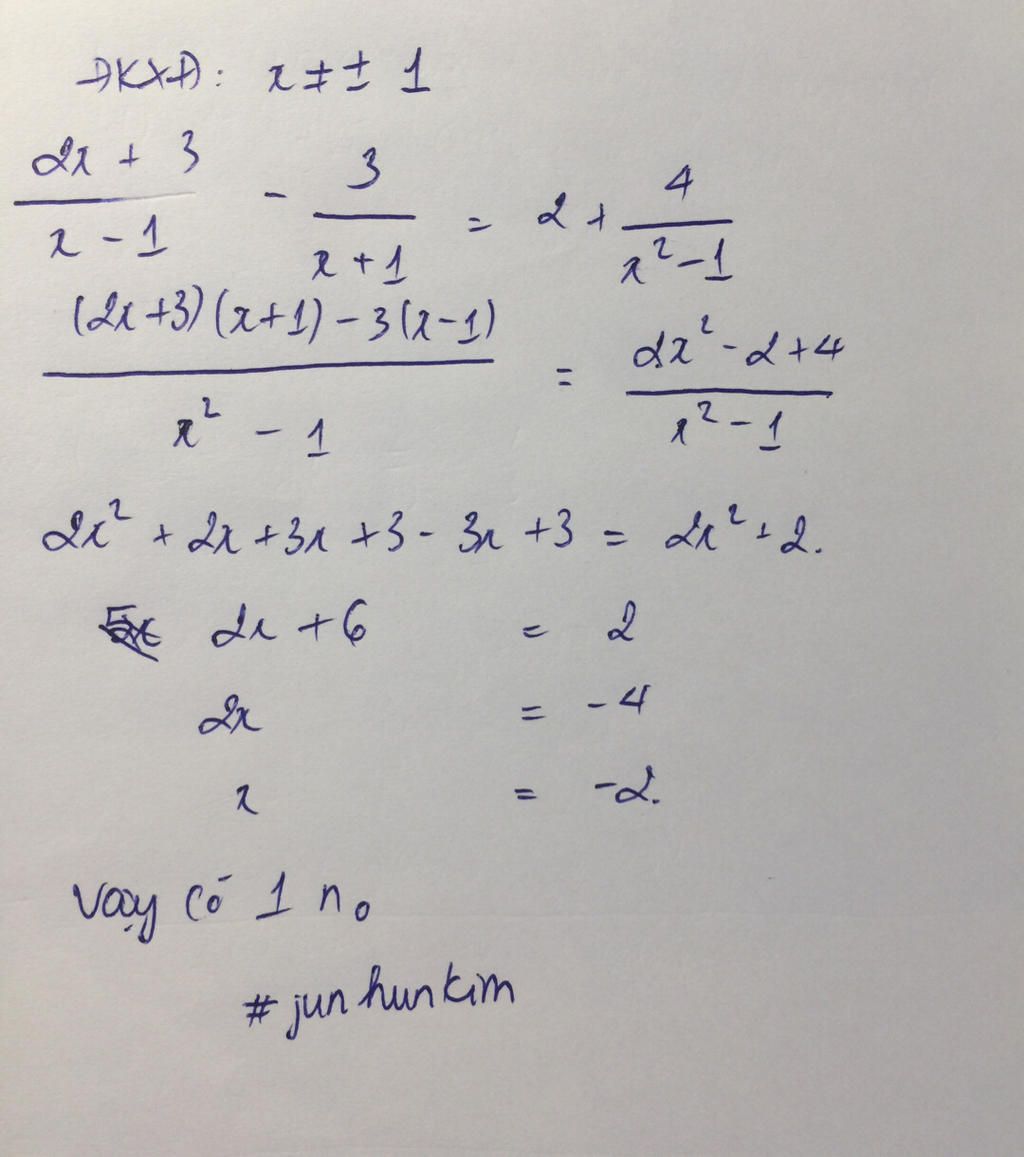 ĐKXĐ: x ≠ ± 1
(2x + 3)/(x - 1) - 3/(x + 1) = 2 + 4/(x² - 1)
((2x+3)(x+1) - 3(x-1))/(x² - 1) = (2x² - 2 + 4)/(x² - 1)
2x² + 2x + 3x + 3 - 3x + 3 = 2x² + 2.
2x + 6 = 2
2x = -4
x = -2.
Vậy có 1 no
#junhunkim